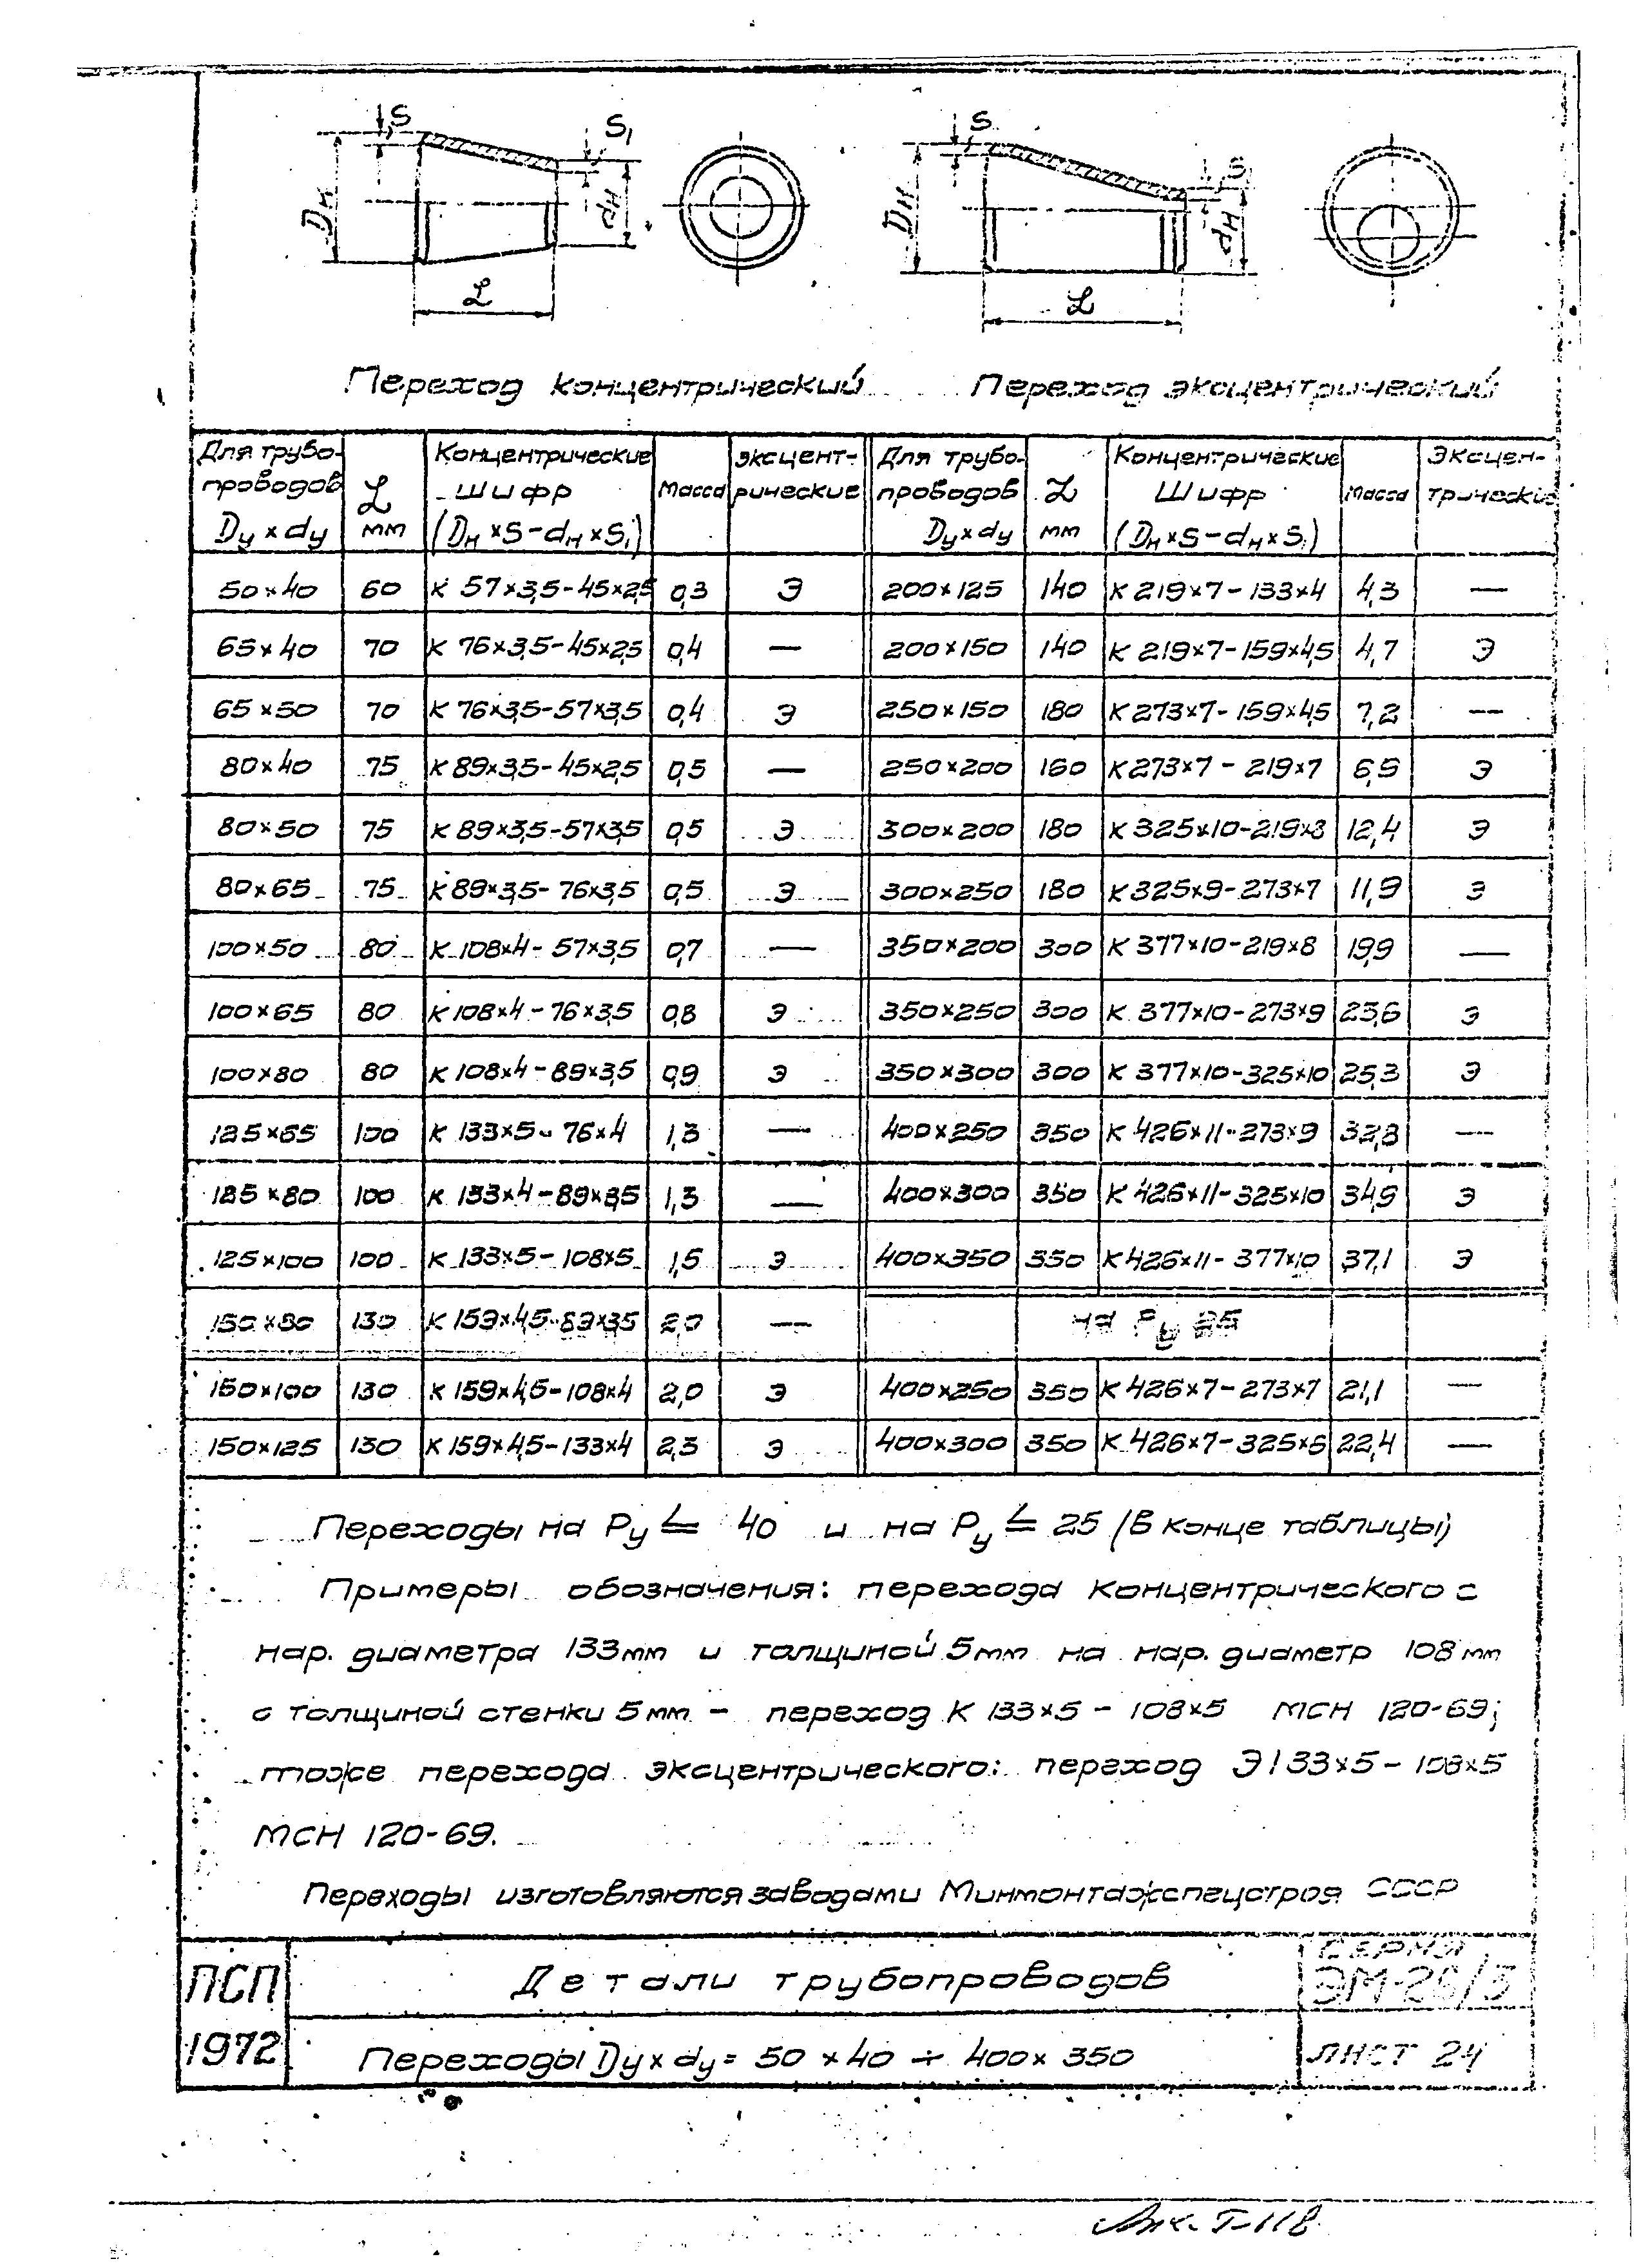 S S₁ Dн dн L
S S₁ Dн dн L
Переход концентрический Переход эксцентрический
Для трубопроводов Dу x dу | L мм | Концентрические Шифр (Dн x S - dн x S₁) | Масса | эксцентрические | Для трубопроводов Dу x dу | L мм | Концентрические Шифр (Dн x S - dн x S₁) | Масса | Эксцентрические
50x40 | 60 | К 57x3,5-45x2,5 | 0,3 | Э | 200x125 | 140 | К 219x7-133x4 | 4,3 | —
65x40 | 70 | К 76x3,5-45x2,5 | 0,4 | — | 200x150 | 140 | К 219x7-159x4,5 | 4,7 | Э
65x50 | 70 | К 76x3,5-57x3,5 | 0,4 | Э | 250x150 | 180 | К 273x7-159x4,5 | 7,2 | —
80x40 | 75 | К 89x3,5-45x2,5 | 0,5 | — | 250x200 | 160 | К 273x7-219x7 | Э
80x50 | 75 | К 89x3,5-57x3,5 | 0,5 | Э | 300x200 | 180 | К 325x10-219x8 | 12,4 | Э
80x65 | 75 | К 89x3,5-76x3,5 | 0,5 | Э | 300x250 | 180 | К 325x9-273x7 | 11,9 | Э
100x50 | 80 | К 108x4-57x3,5 | 0,7 | — | 350x200 | 300 | К 377x10-219x8 | 19,9 | —
100x65 | 80 | К 108x4-76x3,5 | 0,8 | Э | 350x250 | 300 | К 377x10-273x9 | 23,6 | Э
100x80 | 80 | К 108x4-89x3,5 | 0,9 | Э | 350x300 | 300 | К 377x10-325x10 | 25,3 | Э
125x65 | 100 | К 133x5-76x4 | 1,3 | — | 400x250 | 350 | К 426x11-273x9 | 32,8 | —
125x80 | 100 | К 133x4-89x3,5 | 1,3 | — | 400x300 | 350 | К 426x11-325x10 | 34,9 | Э
125x100 | 100 | К 133x5-108x5 | 1,5 | Э | 400x350 | 350 | К 426x11-377x10 | 37,1 | Э
150x80 | 130 | К 159x4,5-89x3,5 | 2,0 | — | на Pу 25
150x100 | 130 | К 159x4,5-108x4 | 2,0 | Э | 400x250 | 350 | К 426x7-273x7 | 21,1 | —
150x125 | 130 | К 159x4,5-133x4 | 2,3 | Э | 400x300 | 350 | К 426x7-325x6 | 22,4 | —
Переходы на Pу ≤ 40 и на Pу ≤ 25 (в конце таблицы)
Примеры обозначения: перехода концентрического с
нар. диаметра 133мм и толщиной 5мм на нар. диаметр 108мм
с толщиной стенки 5мм - переход К 133x5 - 108x5 МСН 120-69;
тоже перехода эксцентрического: переход Э133x5 - 108x5
МСН 120-69.
Переходы изготовляются заводами Минмонтажспецстроя СССР
ПСП 1972
Детали трубопроводов
Переходы Dу x dу = 50 x 40 ÷ 400x 350
СЕРИЯ
ЭМ-26/3
ЛИСТ 24